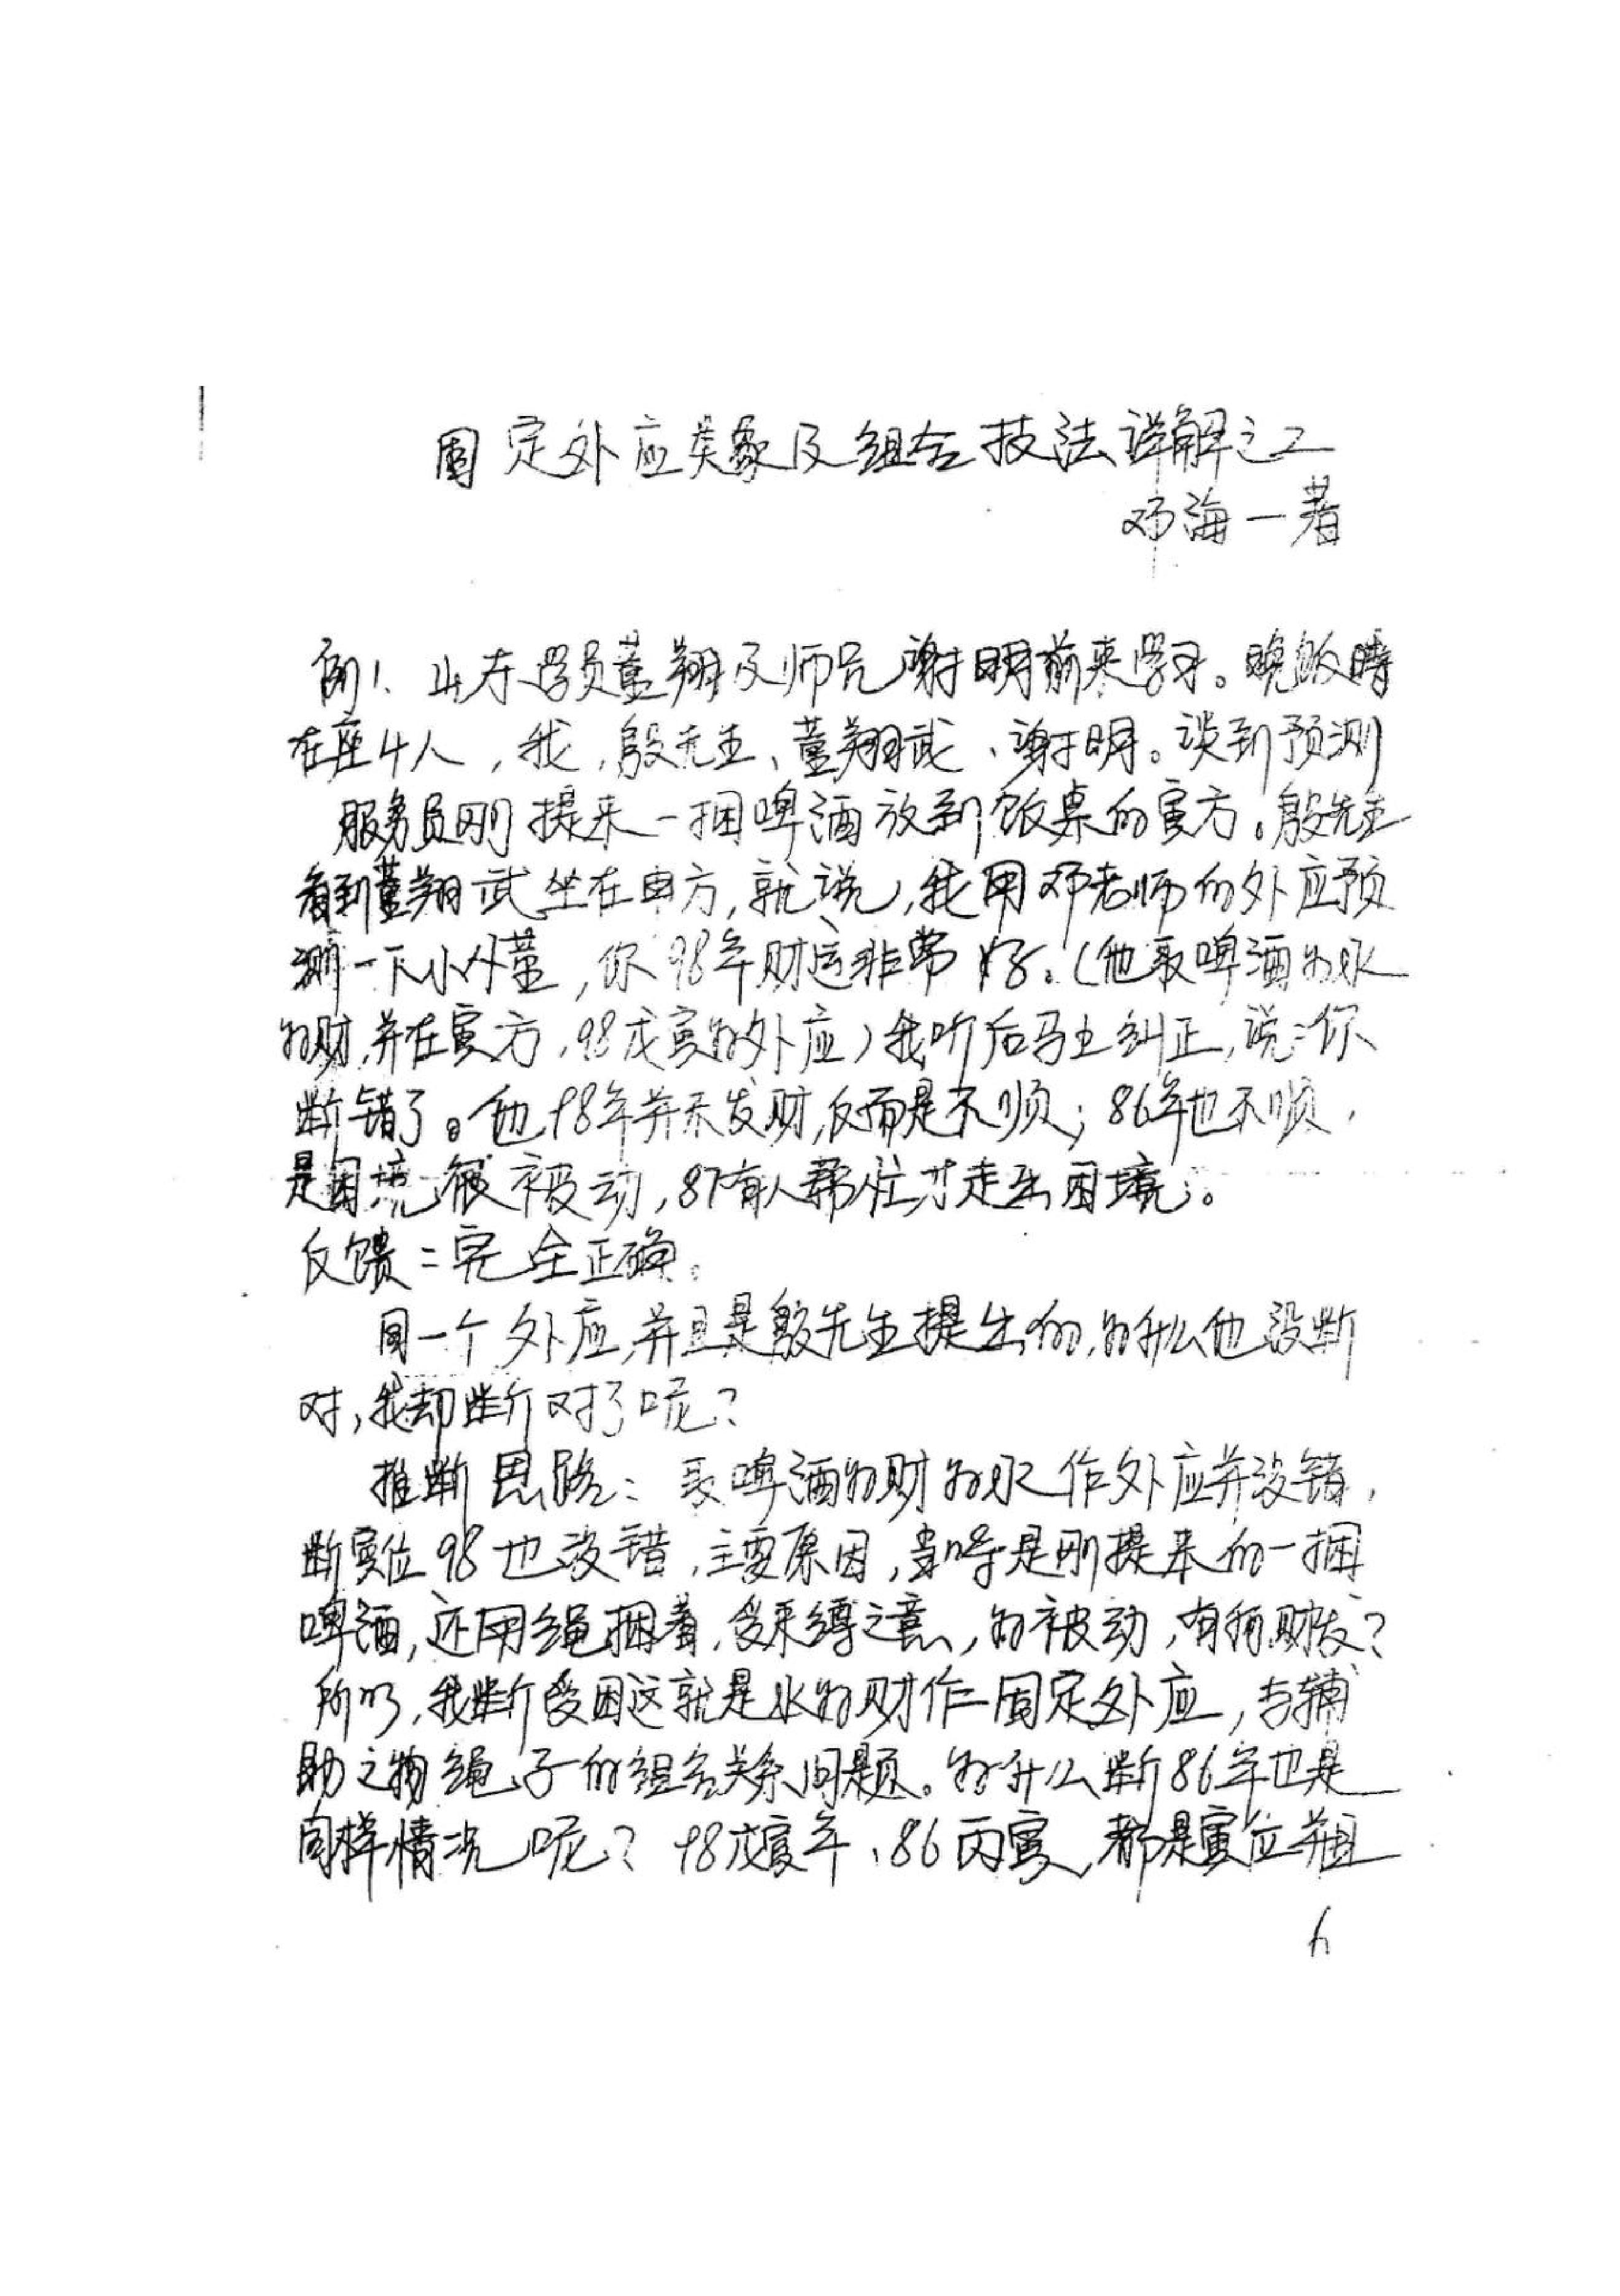 固定外应类象及组合技法详解之二
邓海一著
例1、山东学员董翔及师兄谢明前来学习。晚饭时
在座4人，我，殷先生、董翔武、谢明。谈到预测
服务员刚提来一捆啤酒放到饭桌的寅方。殷先生
看到董翔武坐在申方，就说，我用邓老师的外应预
测一下小董，你98年财运非常好。（他取啤酒为水
为财，并在寅方，98戊寅为外应）我听后马上纠正，说：你
断错了。他98年并未发财，反而是不顺；86年也不顺，
是困境很被动，87有人帮忙才走出困境。
反馈：完全正确。
同一个外应，并且是殷先生提出的，为什么他没断
对，我却断对了呢？
推断思路：取啤酒为财为水作外应并没错，
断寅位98也没错，主要原因，当时是刚提来的一捆
啤酒，还用绳捆着，受束缚之意，为被动，有何财发？
所以，我断受困这就是水为财作固定外应，与辅
助之物绳子的组合关系问题。为什么断86年也是
同样情况呢？98戊寅年、86丙寅，都是寅位并且
6